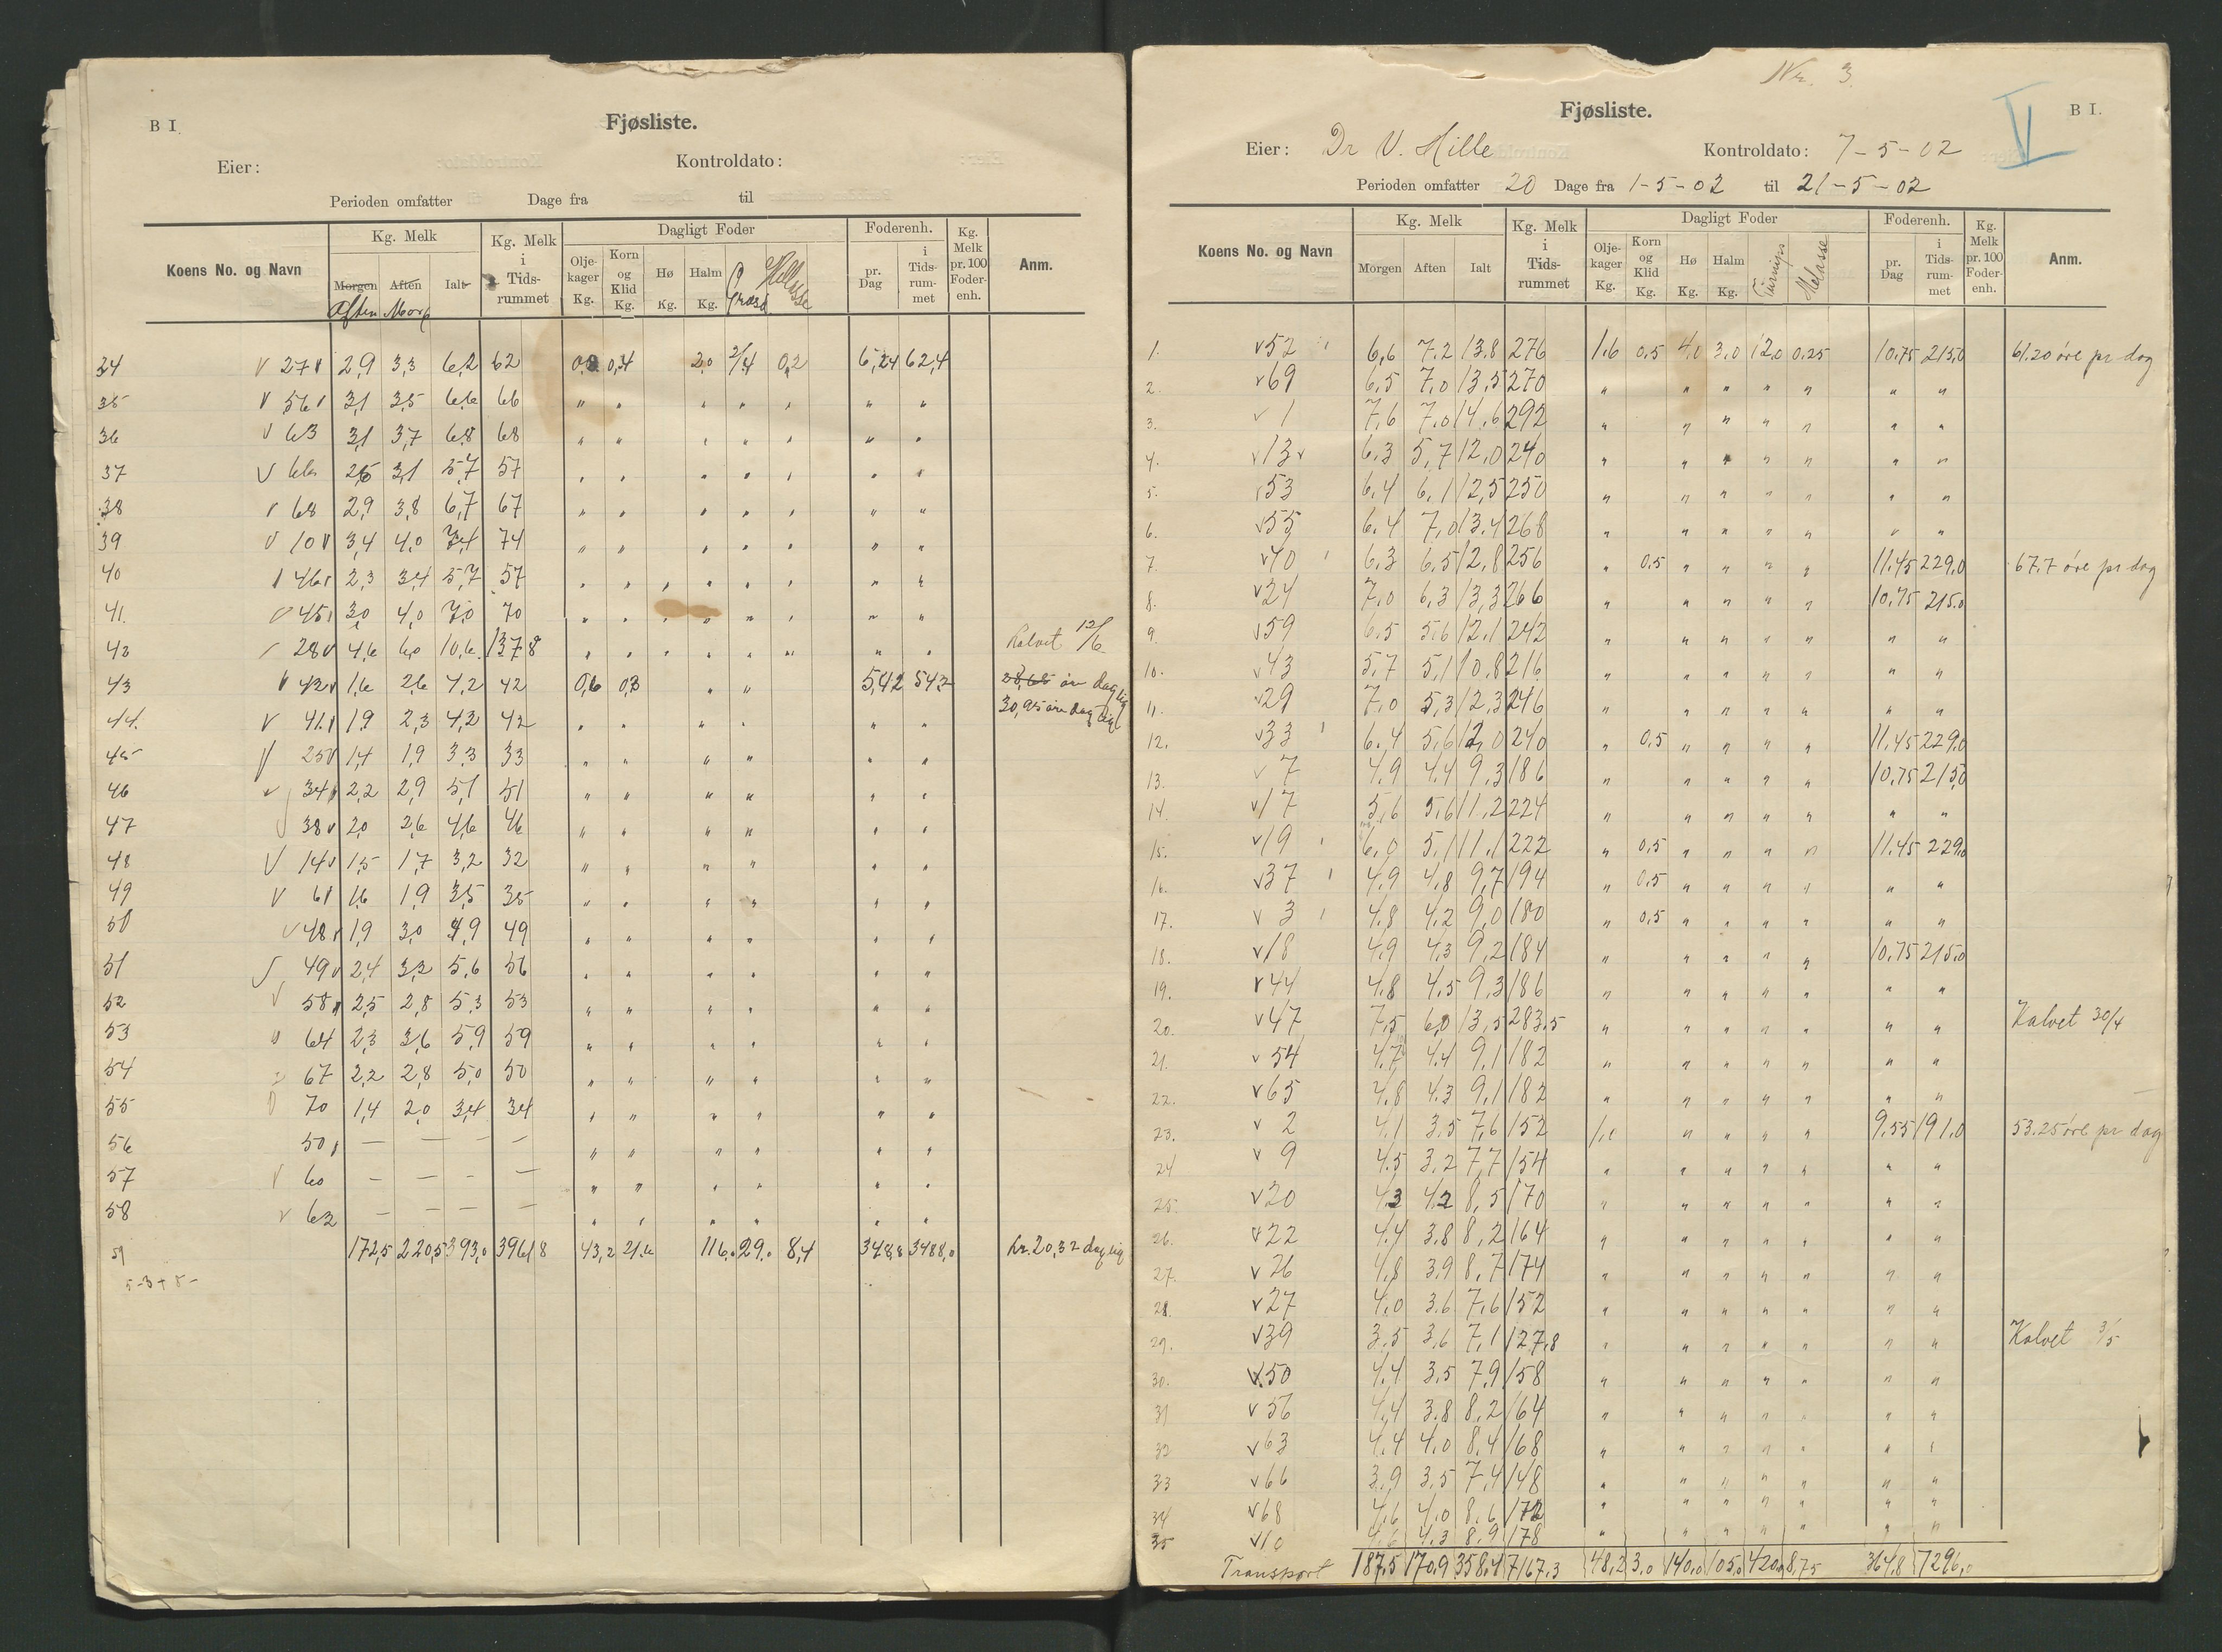 B I.
Fjøsliste.
Eier: Kontroldato:
Perioden omfatter Dage fra til
Koens No. og Navn Kg. Melk Kg. Melk i Tids-rummet Dagligt Foder Foderenh. Kg. Melk pr. 100 Foder-enh. Anm.
Morgen Aften Ialt Olje-kager Kg. Korn og Klid Kg. Hø Kg. Halm Kg. Græss Mellasse pr. Dag i Tids-rum-met
Aften Morg
34 v 27 2,9 3,3 6,2 62 0,8 0,4 2,0 2/4 0,2 6,24 62,4
35 v 56 3,1 3,5 6,6 66 " " " " " " "
36 v 63 3,1 3,7 6,8 68 " " " " " " "
37 v 66 2,6 3,1 5,7 57 " " " " " " "
38 v 68 2,9 3,8 6,7 67 " " " " " " "
39 v 10 v 3,4 4,0 7,4 74 " " " " " " "
40 v 46 2,3 3,4 5,7 57 " " " " " " " "
41. v 45 3,0 4,0 7,0 70 " " " " " " " "
42 v 28 v 4,6 6,0 10,6 137,8 " " " " " " " " Kalvet 12/6
43 v 42 v 1,6 2,6 4,2 42 0,6 0,3 " " 5,42 54,2 28,65 øre daglig
30,95 øre daglig
44. v 41 1,9 2,3 4,2 42 " " " " " "
45 v 25 v 1,4 1,9 3,3 33 " " " " " "
46 v 34 2,2 2,9 5,1 51 " " " " " "
47 v 38 v 2,0 2,6 4,6 46 " " " " " "
48 v 14 v 1,5 1,7 3,2 32 " " " " " "
49 v 6 1,6 1,9 3,5 35 " " " " " "
50 v 48 1,9 3,0 4,9 49 " " " " " "
51 v 49 v 2,4 3,2 5,6 56 " " " " " "
52 v 58 2,5 2,8 5,3 53 " " " " " "
53 v 64 2,3 3,6 5,9 59 " " " " " "
54 v 67 2,2 2,8 5,0 50 " " " " " "
55 v 70 1,4 2,0 3,4 34 " " " " " "
56 50 — — — — " " " " " "
57 v 60 — — — — " " " " " "
58 v 62 — — — — " " " " " "
59 172,5 220,5 393,0 3961,8 43,2 21,6 116,0 29,0 8,4 348,8 3488,0 kr. 20,32 daglig
Nr. 3.
V
B I.
Fjøsliste.
Eier: Dr V. Hille Kontroldato: 7-5-02
Perioden omfatter 20 Dage fra 1-5-02 til 21-5-02
Koens No. og Navn Kg. Melk Kg. Melk i Tids-rummet Dagligt Foder Foderenh. Kg. Melk pr. 100 Foder-enh. Anm.
Morgen Aften Ialt Olje-kager Kg. Korn og Klid Kg. Hø Kg. Halm Kg. Turnips Melasse pr. Dag i Tids-rum-met
1. v 52 6,6 7.2 13.8 276 1.6 0.5 4.0 3.0 12.0 0.25 10.75 215,0 61.20 øre pr dag
2. v 69 6,5 7,0 13,5 270 " " " " " " "
3. v 1 7,6 7,0 14,6 292 " " " " " " "
4. v 13 v 6.3 5,7 12.0 240 " " " " " " "
5. v 53 6,4 6,1 12,5 250 " " " " " " "
6. v 55 6.4 7,0 13.4 268 " " " " " " "
7. v 40 6,3 6,5 12,8 256 " 0.5 " " " " 11.45 229,0 67.7 øre pr dag
8. v 24 7,0 6,3 13,3 266 " " " " " 10,75 215.0
9. v 59 6,5 5,6 12.1 242 " " " " " " "
10. v 43 5,7 5,1 10,8 216 " " " " " " "
11. v 29 7,0 5,3 12,3 246 " " " " " " "
12. v 33 6.4 5,6 12,0 240 " 0,5 " " " " 11.45 229,0
13. v 7 4.9 4.4 9.3 186 " " " " " 10,75 215,0
14. v 17 5,6 5,6 11.2 224 " " " " " " "
15. v 19 6,0 5,1 11,1 222 " 0,5 " " " " 11,45 229,0
16. v 37 4.9 4.8 9,7 194 " 0,5 " " " " " "
17. v 3 4.8 4.2 9,0 180 " 0,5 " " " " " "
18. v 18 4.9 4.3 9,2 184 " " " " " 10,75 215,0
19. v 44 4.8 4.5 9,3 186 " " " " " " "
20. v 47 7,5 6,0 13,5 283.5 " " " " " " " Kalvet 30/4
21. v 54 4.7 4.4 9,1 182 " " " " " " "
22. v 65 4.8 4.3 9,1 182 " " " " " " "
23. v 2 4.1 3.5 7,6 152 1,0 " " " " 9.55 191.0 53.25 øre pr dag
24 v 9 4.5 3.2 7,7 154 " " " " " " "
25. v 20 4.3 4.2 8,5 170 " " " " " " "
26. v 22 4.4 3.8 8,2 164 " " " " " " "
27. v 26 4.8 3.9 8,7 174 " " " " " " "
28. v 27 4,0 3.6 7,6 152 " " " " " " "
29. v 39 3,5 3,6 7,1 127,8 " " " " " " " Kalvet 3/5
30. v 50 4.4 3.5 7,9 158 " " " " " " "
31 v 56 4.4 3.8 8,2 164 " " " " " " "
32 v 63 4.4 4.0 8.4 168 " " " " " " "
33 v 66 3.9 3.5 7.4 148 " " " " " " "
34 v 68 4.6 4.0 8.6 172 " " " " " " "
35 v 10 4.6 4.3 8.9 178 " " " " " " "
Transport 187.5 170.9 358.4 7167.3 48,2 3.0 140,0 105,0 420,0 8,75 364,8 7296,0